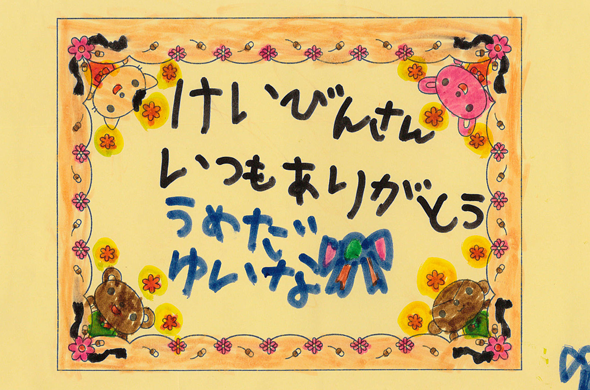 けいびんさん
いつもありがとう
うめだ
ゆいな